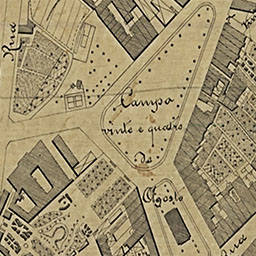 Rua
Campo
vinte e quatro
De
Agosto
Rua